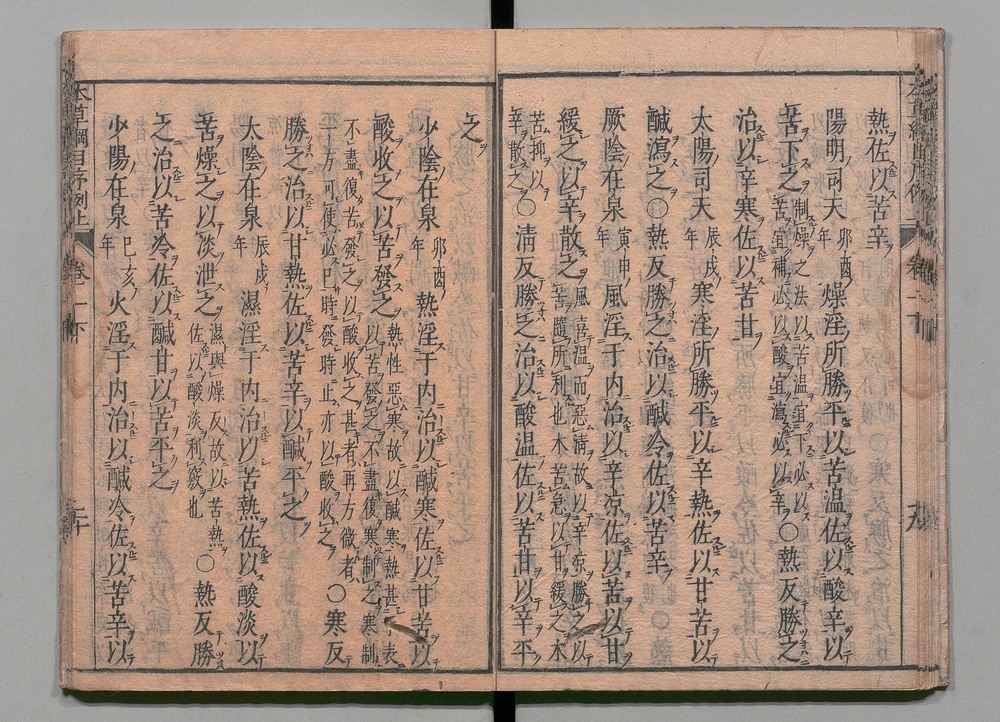 熱佐以苦辛
陽明司天卯酉年燥淫所勝平以苦温佐以酸辛以
苦下之制燥之法以苦温宜下必以苦宜補必以酸宜瀉必以辛〇熱反勝之
治以辛寒佐以苦甘
太陽司天辰戌年寒淫所勝平以辛熱佐以甘苦以
鹹瀉之〇熱反勝之治以鹹冷佐以苦辛
厥陰在泉寅申年風淫于内治以辛凉佐以苦以甘
緩之以辛散之風喜温而惡清故以辛凉勝之佐以苦隨所利也木苦急以甘緩之木
苦抑以辛散之〇清反勝之治以酸温佐以苦甘以辛平
之
少陰在泉卯酉年熱淫于内治以鹹寒佐以甘苦以
酸收之以苦發之熱性惡寒故以鹹寒熱甚于表以苦發之不盡復寒制之寒制
不盡復苦發之以酸收之甚者再方微者一方可使必已時發時止亦以酸收之〇寒反
勝之治以甘熱佐以苦辛以鹹平之
太陰在泉辰戌年濕淫于内治以苦熱佐以酸淡以
苦燥之以淡泄之濕與燥反故以苦熱佐以酸淡利竅也〇熱反勝
之治以苦冷佐以鹹甘以苦平之
少陽在泉巳亥年火淫于内治以鹹冷佐以苦辛以
本草綱目序例上 卷一下 二十